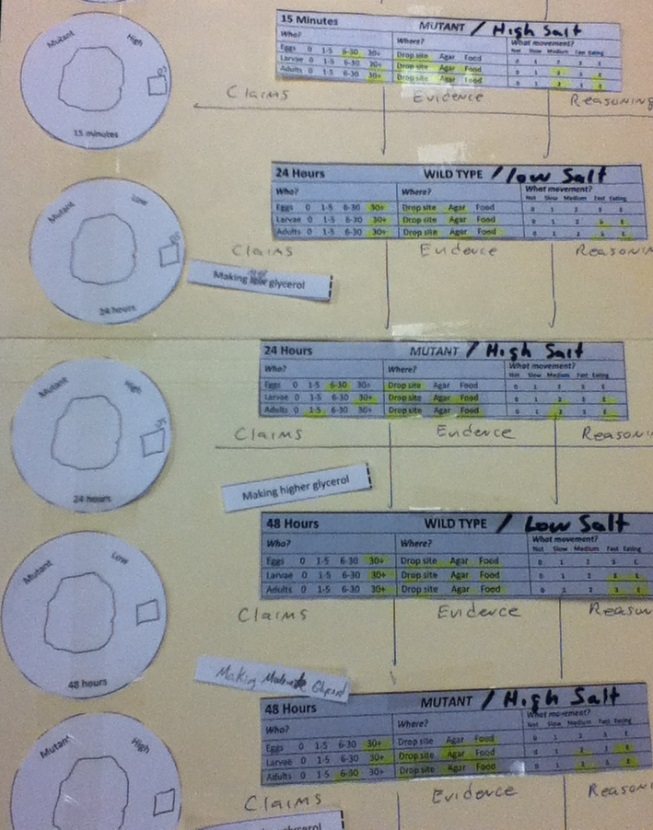 Mutant High
15 minutes
15 Minutes MUTANT / High Salt
Who? Where? What movement?
Not Slow Medium Fast Eating
Eggs 0 1-5 6-30 30+ Drop site Agar Food
Larvae 0 1-5 6-30 30+ Drop site Agar Food
Adults 0 1-5 6-30 30+ Drop site Agar Food
Claims Evidence Reasoning
Mutant Low
24 hours
24 Hours WILD TYPE / low Salt
Who? Where? What movement?
Not Slow Medium Fast Eating
Eggs 0 1-5 6-30 30+ Drop site Agar Food
Larvae 0 1-5 6-30 30+ Drop site Agar Food
Adults 0 1-5 6-30 30+ Drop site Agar Food
Claims Evidence Reasonin
Making glycerol
Mutant High
24 hours
24 Hours MUTANT / High Salt
Who? Where? What movement?
Not Slow Medium Fast Eating
Eggs 0 1-5 6-30 30+ Drop site Agar Food
Larvae 0 1-5 6-30 30+ Drop site Agar Food
Adults 0 1-5 6-30 30+ Drop site Agar Food
Claims Evidence Reasoni
Making higher glycerol
Mutant Low
48 hours
48 Hours WILD TYPE / Low Salt
Who? Where? What movement?
Not Slow Medium Fast Eating
Eggs 0 1-5 6-30 30+ Drop site Agar Food
Larvae 0 1-5 6-30 30+ Drop site Agar Food
Adults 0 1-5 6-30 30+ Drop site Agar Food
Claims Evidence Reason
Making
Mutant High
48 Hours MUTANT / High Salt
Who? Where? What movement?
Not Slow Medium Fast Eating
Eggs 0 1-5 6-30 30+ Drop site Agar Food
Larvae 0 1-5 6-30 30+ Drop site Agar Food
Adults 0 1-5 6-30 30+ Drop site Agar Food
Claims Evidence Reason